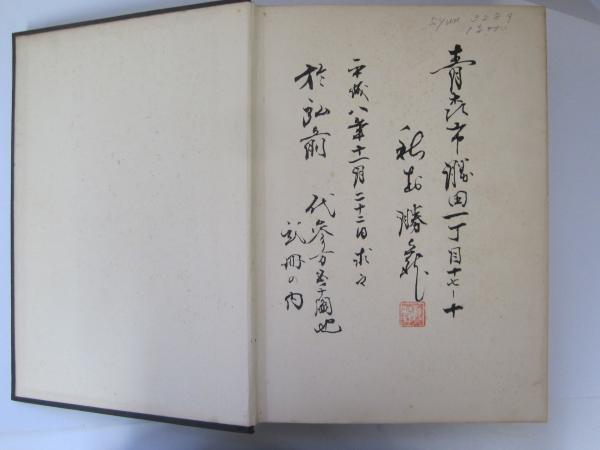 青森市勝田一丁目十七ー十
勝蔵
平成八年十一月二十二日求む
於弘前
代参万五千円也
弐冊の内